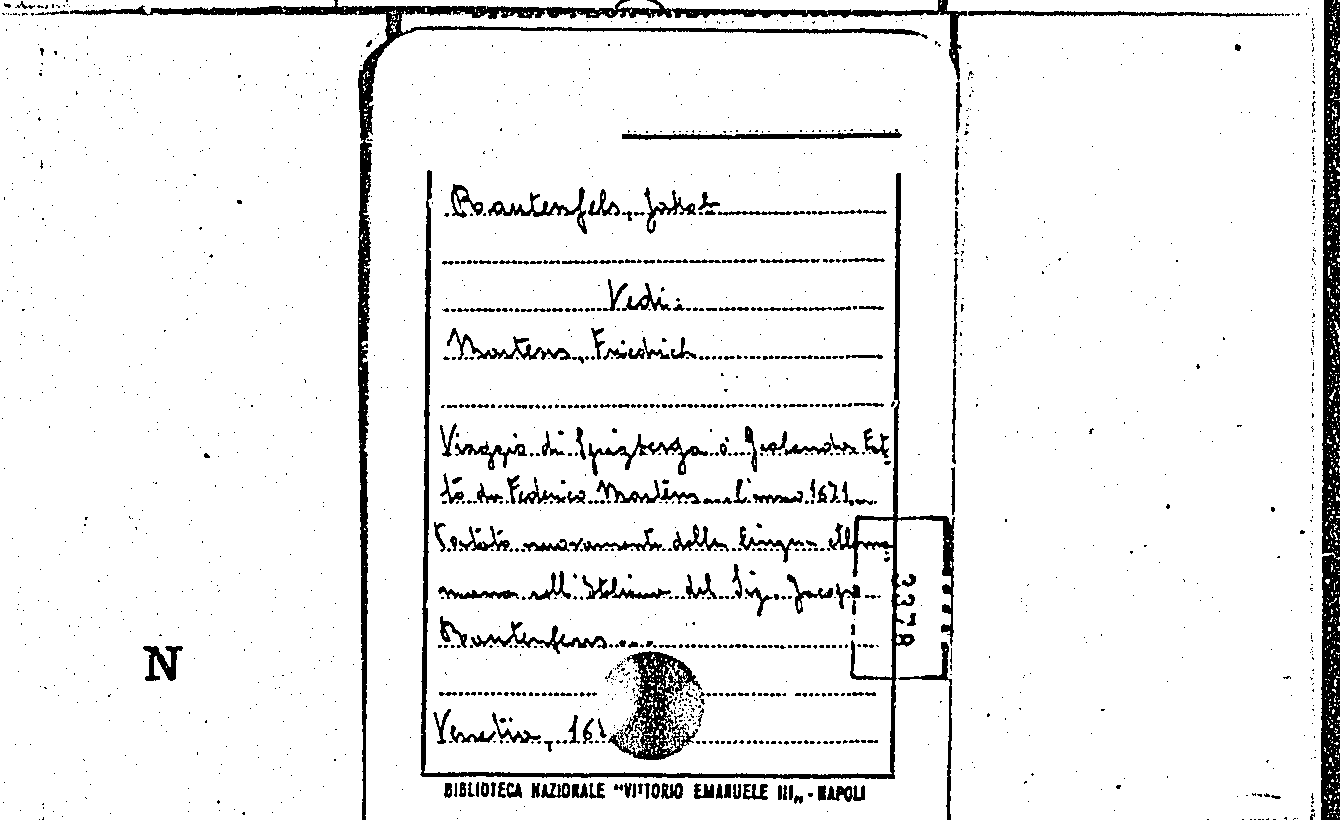 Rautenfels, Jakob
Vedi:
Martens, Friedrich
Viaggio di Spizberga o' Grolanda Fat
to da Federico Martens l'anno 1671
Portato nuovamente dalla lingua Alema
manna nell'Italiana dal Sig. Jacopo
Rautenfens ...
Venetia, 16
BIBLIOTECA NAZIONALE "VITTORIO EMANUELE III" - NAPOLI
3378
N